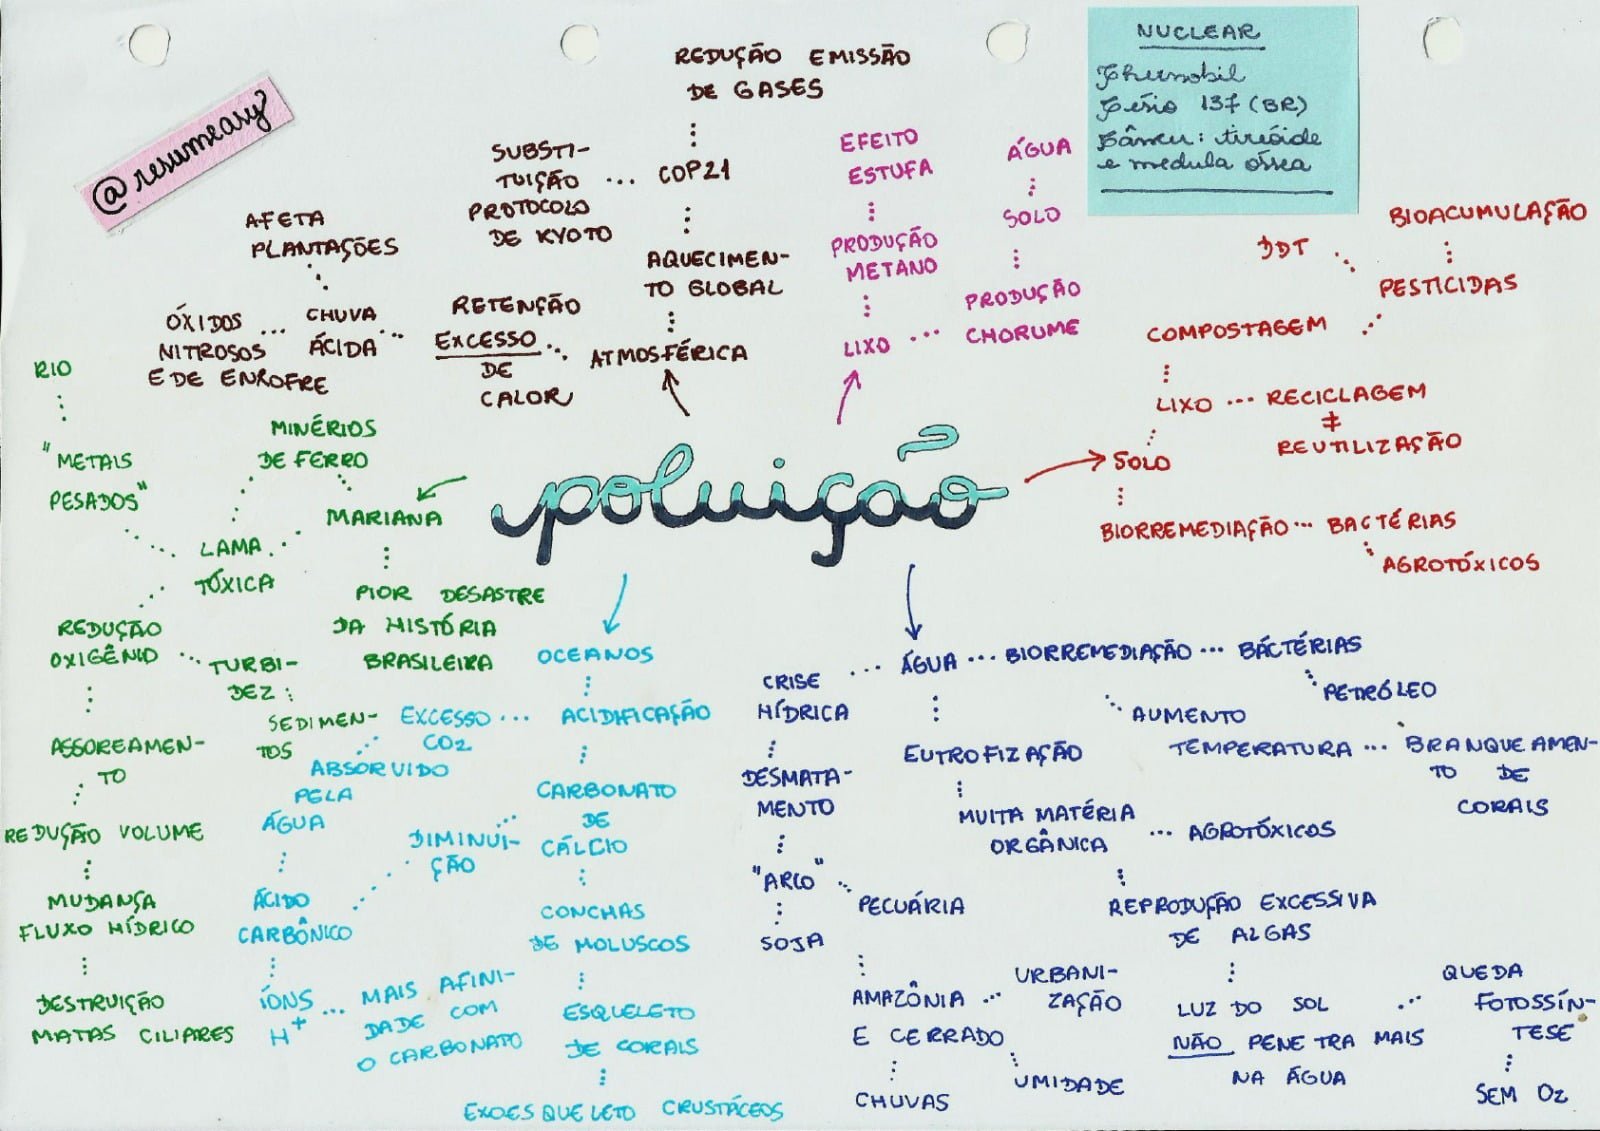 @resumeasy
NUCLEAR
Chernobil
Césio 137 (BR)
Câncer: tireóide
e medula óssea
REDUÇÃO EMISSÃO
DE GASES
SUBSTI-
TUIÇÃO ... COP21
PROTOCOLO
DE KYOTO
AQUECIMEN-
TO GLOBAL
ATMOSFÉRICA
RETENÇÃO
EXCESSO
DE
CALOR
AFETA
PLANTAÇÕES
CHUVA
ÁCIDA
ÓXIDOS
NITROSOS
E DE ENXOFRE
EFEITO
ESTUFA
PRODUÇÃO
METANO
LIXO
ÁGUA
SOLO
PRODUÇÃO
CHORUME
BIOACUMULAÇÃO
DDT
PESTICIDAS
COMPOSTAGEM
LIXO ... RECICLAGEM
≠
REUTILIZAÇÃO
SOLO
BIORREMEDIAÇÃO ... BACTÉRIAS
AGROTÓXICOS
poluição
RIO
"METAIS
PESADOS"
MINÉRIOS
DE FERRO
MARIANA
LAMA
TÓXICA
PIOR DESASTRE
DA HISTÓRIA
BRASILEIRA
REDUÇÃO
OXIGÊNIO
TURBI-
DEZ:
SEDIMEN-
TOS
ASSOREAMEN-
TO
REDUÇÃO VOLUME
MUDANÇA
FLUXO HÍDRICO
DESTRUIÇÃO
MATAS CILIARES
OCEANOS
ACIDIFICAÇÃO
EXCESSO ...
CO2
ABSORVIDO
PELA
ÁGUA
ÁCIDO
CARBÔNICO
ÍONS ...
H+
MAIS AFINI-
DADE COM
O CARBONATO
DIMINUI-
ÇÃO
CARBONATO
DE
CÁLCIO
CONCHAS
DE MOLUSCOS
ESQUELETO
DE CORAIS
EXOESQUELETO CRUSTÁCEOS
ÁGUA ... BIORREMEDIAÇÃO ... BÁCTÉRIAS
PETRÓLEO
CRISE
HÍDRICA
DESMATA-
MENTO
"ARCO"
SOJA
PECUÁRIA
AMAZÔNIA
E CERRADO
URBANI-
ZAÇÃO
CHUVAS
UMIDADE
AUMENTO
TEMPERATURA ... BRANQUEAMEN-
TO DE
CORAIS
EUTROFIZAÇÃO
MUITA MATÉRIA
ORGÂNICA
... AGROTÓXICOS
REPRODUÇÃO EXCESSIVA
DE ALGAS
LUZ DO SOL
NÃO PENETRA MAIS
NA ÁGUA
QUEDA
FOTOSSÍN-
TESE
SEM O2